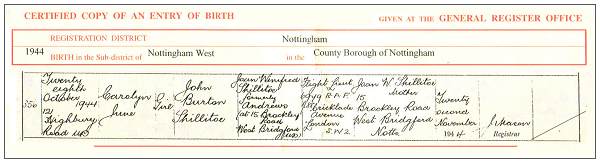 CERTIFIED COPY OF AN ENTRY OF BIRTH
GIVEN AT THE GENERAL REGISTER OFFICE
REGISTRATION DISTRICT Nottingham
1944 BIRTH in the Sub-district of Nottingham West in the County Borough of Nottingham
350
Twenty
eighth
October
1944
121
Highbury
Road
Carolyn
June
Girl
John
Burton
Shillitoe
Joan Winifred
Shillitoe
formerly
Andrews
(at 15 Brockley
Road
West Bridgford
Flight Lieut
R.A.F.
Cricklade
Avenue
London
S.W.2.
Joan W Shillitoe
Mother
15
Brockley Road
West Bridgford
Notts
Twenty
second
November
1944
Registrar